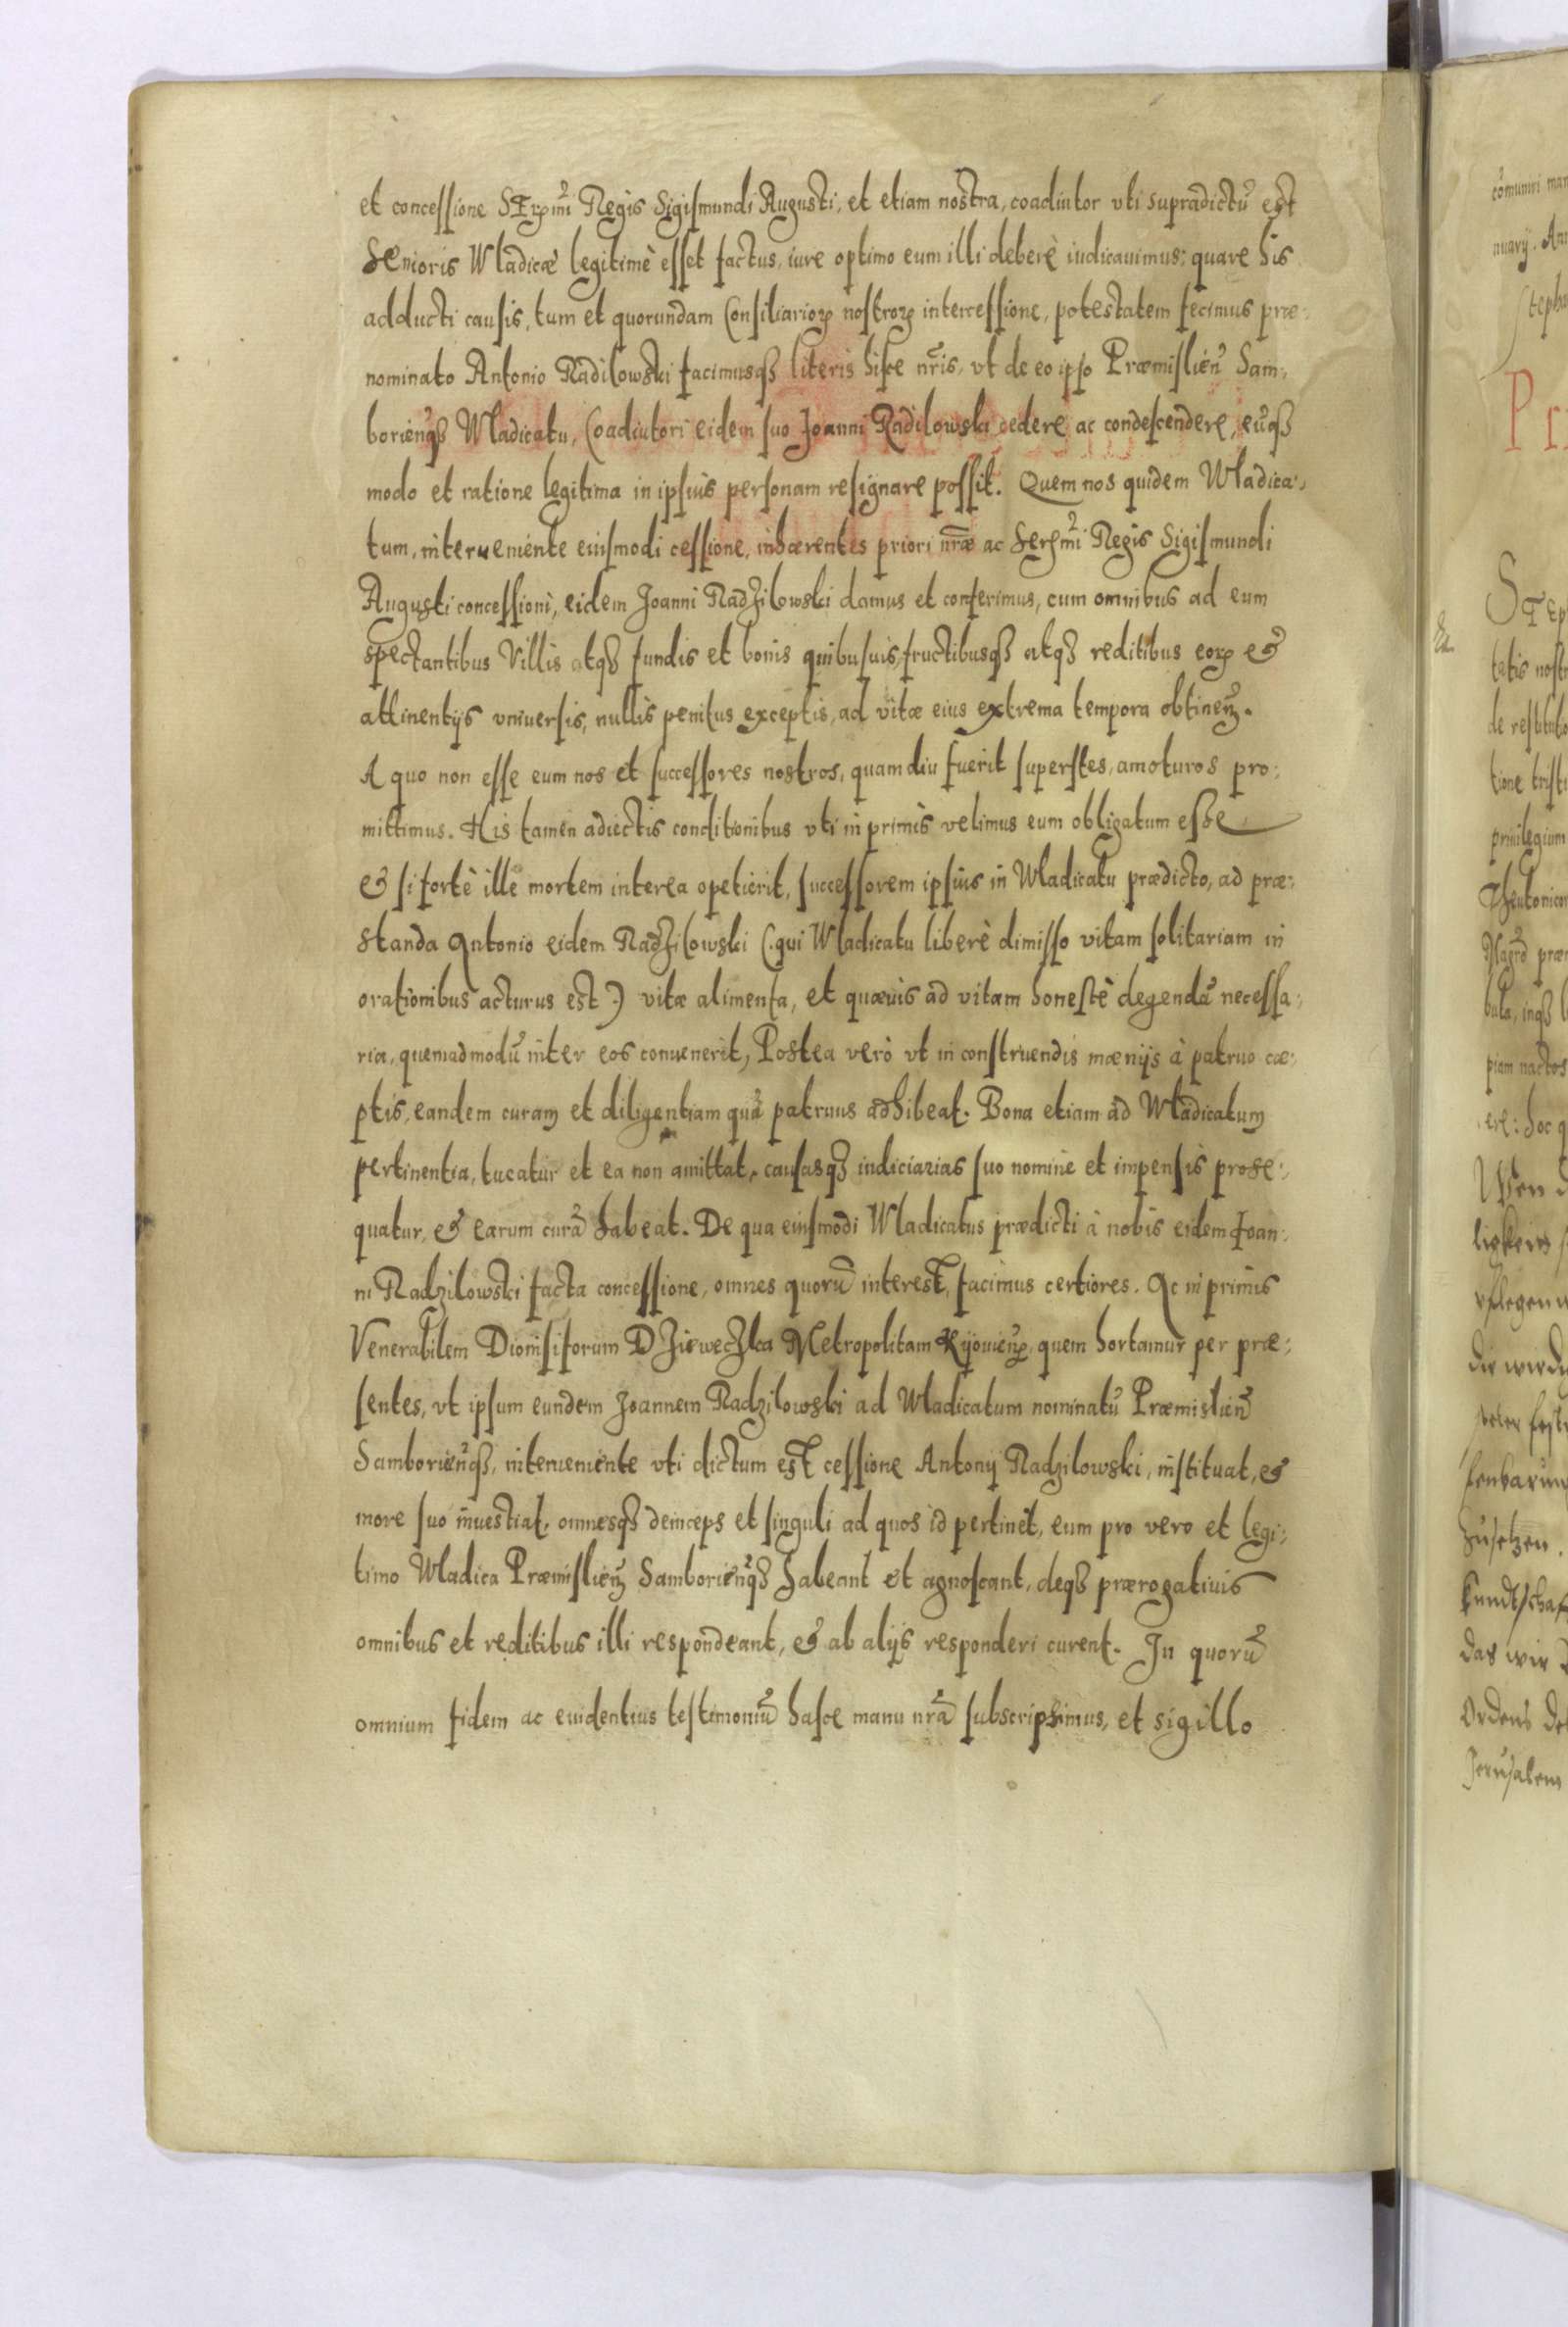 et concessione SErꝫmi Regis Sigismundi Augusti, et etiam nostra, coadiutor vti supradictũ est
Senioris Wladicæ legitimè esset factus, iure optimo eum illi deberè iudicauimus: quare his
adducti causis, tum et quorundam Consiliarioꝝ nostroꝝ intercessione, potestatem fecimus præ:
nominato Antonio Radilowski facimusqꝫ literis hisce nr̃is, vt de eo ipso Præmislieñ Sam:
borieñqꝫ Wladicatu, Coadiutori eidem suo Joanni Radilowski cedere ac condescendere, eũqꝫ
modo et ratione legitima in ipsius personam resignare possit. Quem nos quidem Wladica:
tum, interueniente eiusmodi cessione, inhærentes priori nr̃æ ac Serꝫmi Regis Sigismundi
Augusti concessioni, eidem Joanni Radzilowski damus et conferimus, cum omnibus ad eum
spectantibus Villis atqꝫ fundis et bonis quibusuis, fructibusqꝫ atqꝫ reditibus eoꝝ &
attinentijs vniuersis, nullis penitus exceptis, ad vitæ eius extrema tempora obtineñ.
A quo non esse eum nos et successores nostros, quamdiu fuerit superstes, amoturos pro:
mittimus. His tamen adiectis conditionibus vti in primis velimus eum obligatum esse
& si fortè ille mortem interea opetierit, successorem ipsius in Wladicatu prædicto, ad præ:
standa Antonio eidem Radzilowski (: qui Wladicatu liberè dimisso vitam solitariam in
orationibus acturus est :) vitæ alimenta, et quæuis ad vitam honestè degendã necessa:
ria, quemadmodũ inter eos conuenerit, Postea verò vt in construendis mænijs à patruo cæ:
ptis, eandem curam et diligentiam quã patruus adhibeat. Bona etiam ad Wladicatum
pertinentia, tueatur et ea non amittat, causasqꝫ iudiciarias suo nomine et impensis prose:
quatur, & earum curã habeat. De qua eiusmodi Wladicatus prædicti à nobis eidem Joan:
ni Radzilowski facta concessione, omnes quorũ interest, facimus certiores. Ac in primis
Venerabilem Dionisiforum DZieweczka Metropolitam Kijouieñ, quem hortamur per præ:
sentes, vt ipsum eundem Joannem Radzilowski ad Wladicatum nominatũ Præmislieñ
Samborieñqꝫ, interueniente vti dictum est cessione Antonij Radzilowski, instituat, &
more suo inuestiat, omnesqꝫ deinceps et singuli ad quos id pertinet, eum pro vero et legi:
timo Wladica Præmislieñ Samborieñqꝫ habeant et agnoscant, deqꝫ prærogatiuis
omnibus et reditibus illi respondeant, & ab alijs responderi curent. In quorũ
omnium fidem ac euidentius testimoniũ hasce manu nr̃a subscripsimus, et sigillo